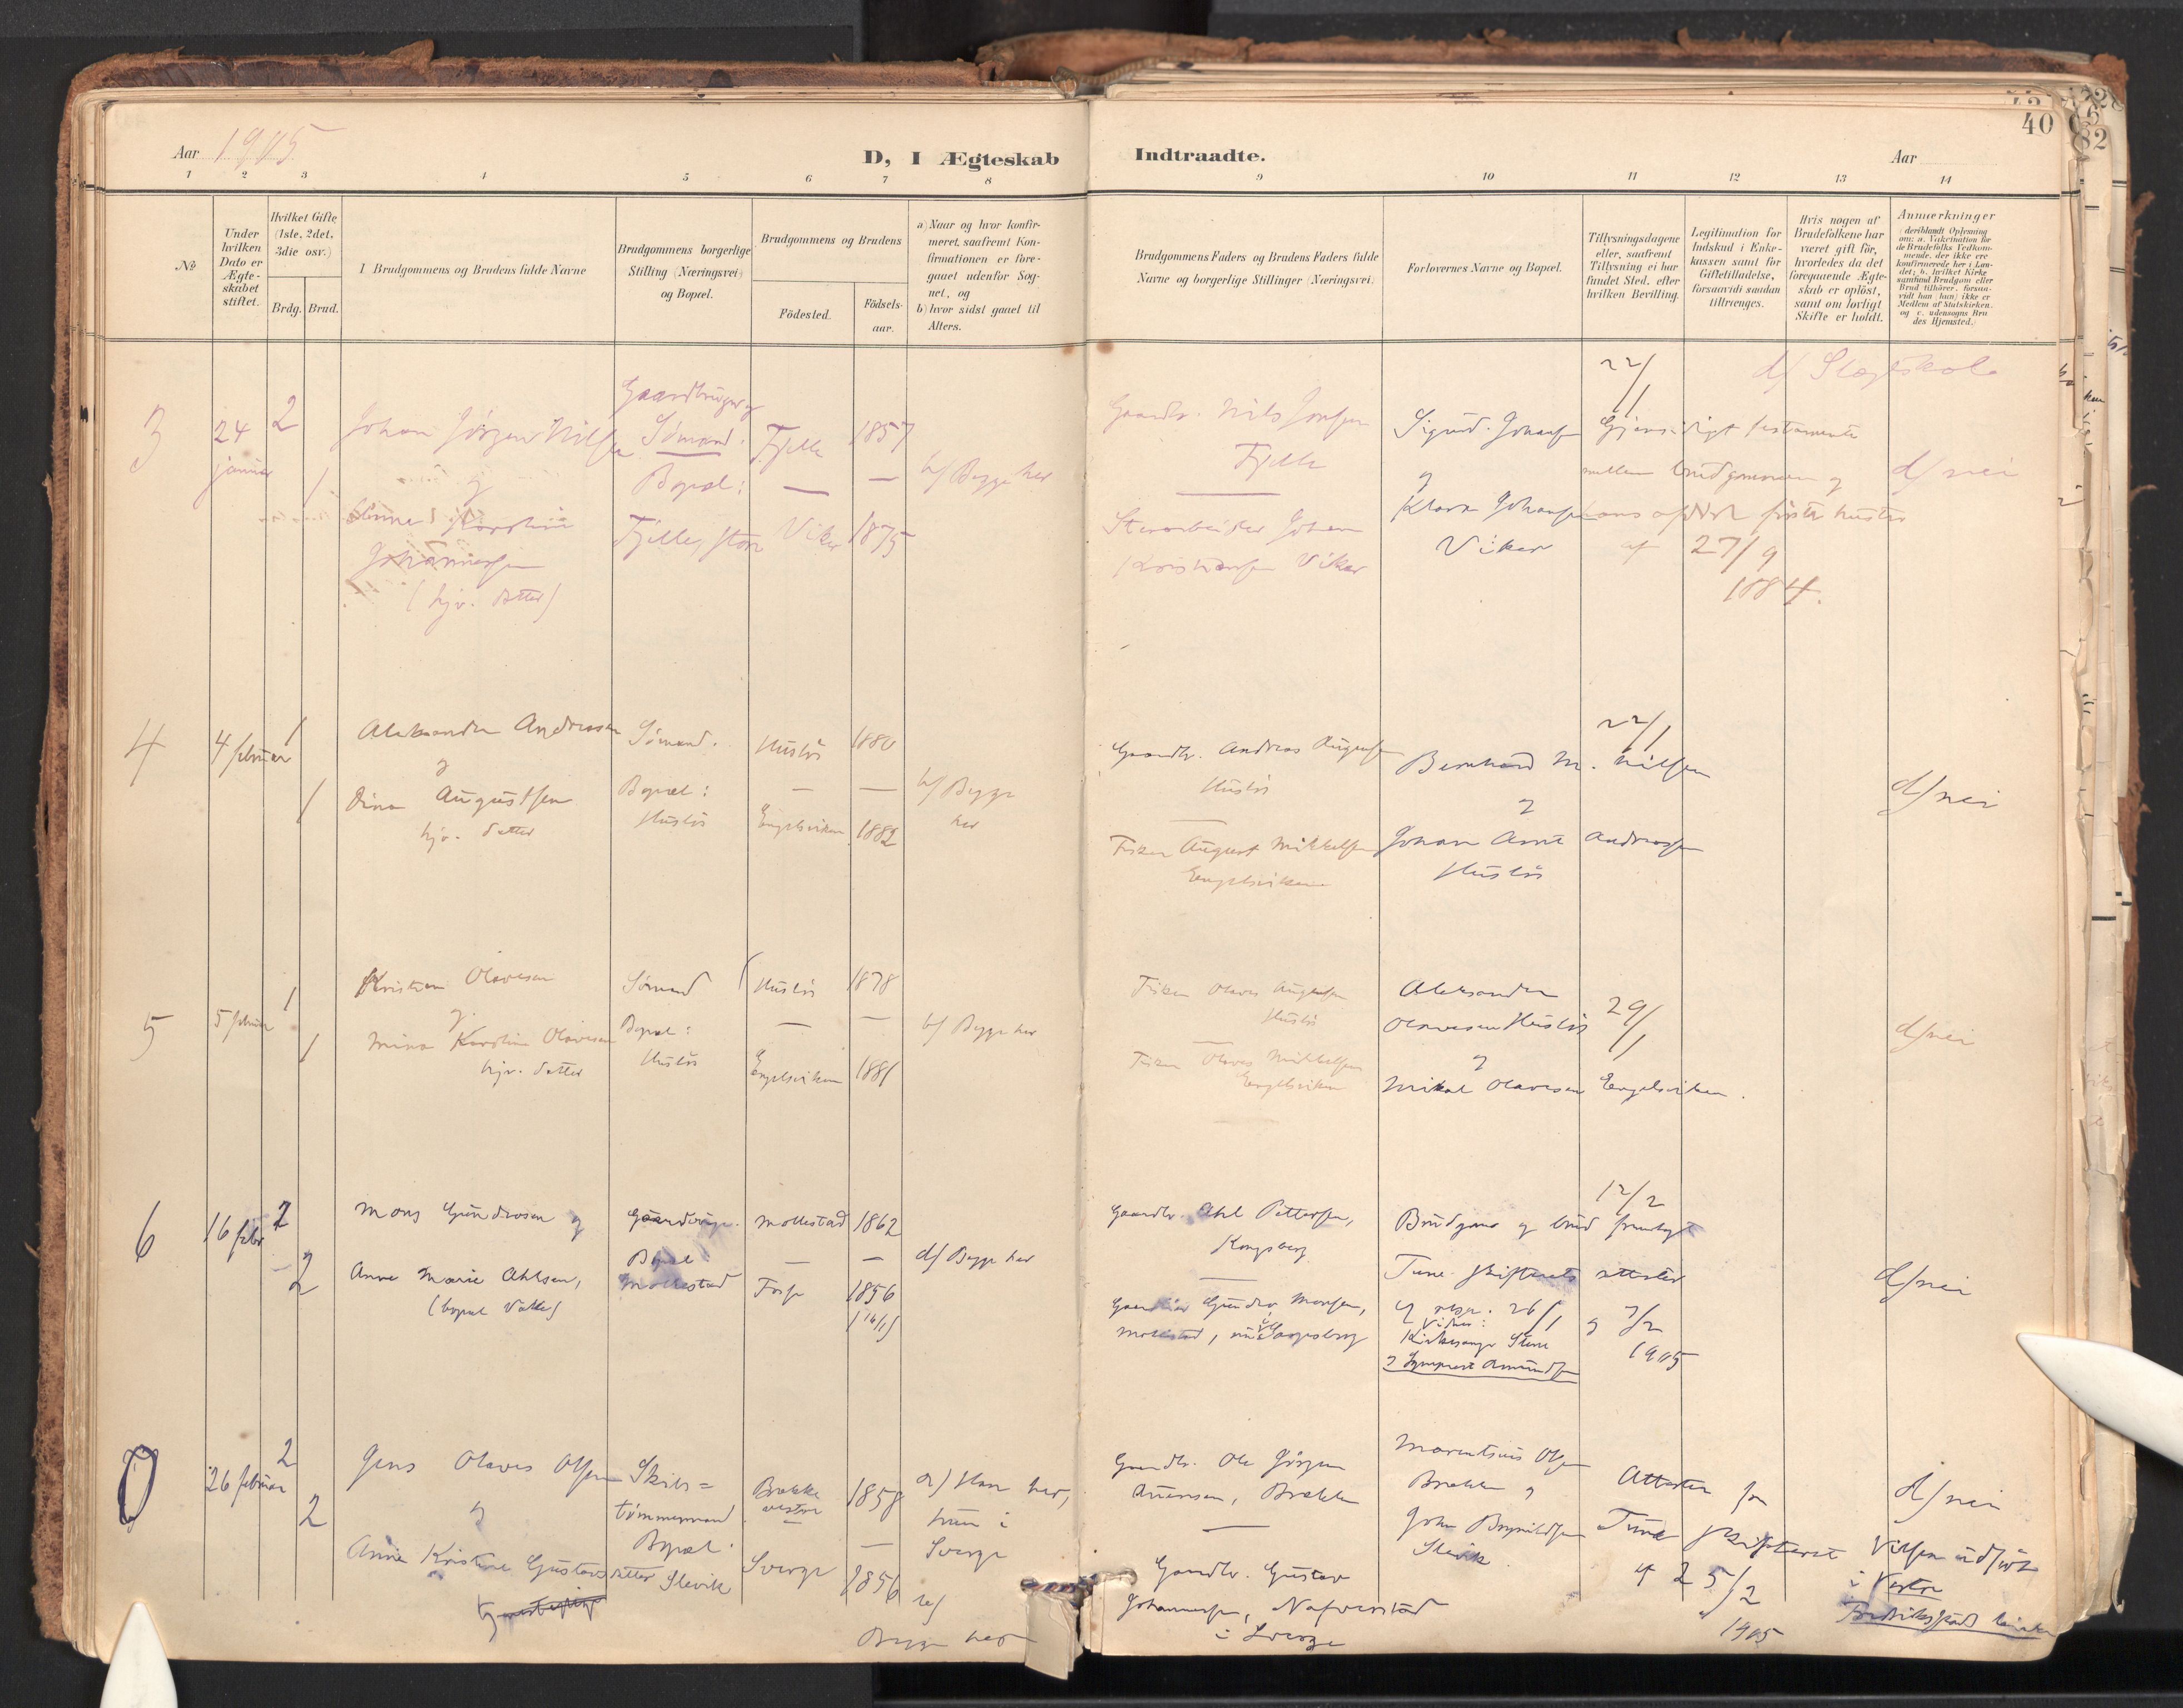 40
Aar 1905
D, I Ægteskab
Indtraadte.
Aar
1 2 3 4 5 6 7 8
9 10 11 12 13 14
No
Under
hvilken
Dato er
Ægte-
skabet
stiftet.
Hvilket Gifte
(1ste, 2det,
3die osv.)
Brdg. Brud.
Brudgommens og Brudens fulde Navne
Brudgommens borgerlige
Stilling (Næringsvei)
og Bopæl.
Brudgommens og Brudens
Födested.
Födsels-
aar.
a) Naar og hvor konfir-
meret, saafremt Kon-
firmationen er fore-
gaaet udenfor Sog-
net, og
b) hvor sidst gaaet til
Alters.
Brudgommens Faders og Brudens Faders fulde
Navne og borgerlige Stillinger (Næringsvei)
Forlovernes Navne og Bopæl.
Tillysningsdagene
eller, saafremt
Tillysning ei har
fundet Sted, efter
hvilken Bevilling.
Legitimation for
Indskud i Enke-
kassen samt for
Giftetilladelse,
forsaavidt saadan
tiltrænges.
Hvis nogen af
Brudefolkene har
været gift för,
hvorledes da det
foregaaende Ægte-
skab er oplöst,
samt om lovligt
Skifte er holdt.
Anmærkninger
(deriblandt Oplysning
om: a. Vakcination for
de Brudefolks Vedkom-
mende, der ikke ere
konfirmerede her i Lan-
det; b. hvilket Kirke
samfund Brudgom eller
Brud tilhörer, forsaa-
vidt han (hun) ikke er
Medlem af Statskirken,
og c. udensogns Bru
des Hjemsted.)
3
24
januar
2
1
Johan Jörgen Nilsen
og
Karoline
Johannesen
(hjv. datter)
Gaardbruger og
Sömand.
Bopæl:
Fjelle
Fjelle 1857
Viker 1875
b/ Begge her
Gaardbr. Nils
Fjelle
Stenarbeider Johan
Kristiansen Viker
Sigurd Johansen
og
Klara Johansen
Viker
22/1
Gjensidigt testamente
mellem brudgommen og
hans afdöde förste hustru
af 27/9
1884.
d/ Slægtskab
d/ nei
4
4 februar
1
1
Aleksander Andreassen
og
Dina Augustsen
hjv. datter
Sömand.
Bopæl:
Huslös
Huslös 1880
Engelsviken 1882
b/ Begge
her
Gaardbr. Andreas Augustsen
Huslös
Fisker August Mikkelsen
Engelsviken
Bernhard M. Nilsen
og
Johan Arnt Andreassen
Huslös
22/1
d/ nei
5
5 februar
1
1
Kristian Olavesen
og
Mina Karoline Olavesen
hjv. datter
Sömand
Bopæl:
Huslös
Huslös 1878
Engelsviken 1881
b/ Begge her
Fisker Olaves Augustsen
Huslös
Fisker Olaves Mikkelsen
Engelsviken
Aleksander
Olavesen Huslös
og
Mikal Olavesen Engelsviken.
29/1
d/ nei
6
16 febr
2
2
Mons Gundrosen og
Anne Marie Ahlsen,
(bopæl Valle)
Gaardbruger.
Bopæl
Mollestad
Mollestad 1862
1856
(16/1)
d/ Begge her
Gaardbr. Ahl Pettersen,
Kongsberg
Gundro Monsen,
Mollestad, nu Sarpsborg
12/2
Brudgom og brud fremlagt
Tune skifterets attester
26/1 og 7/2
1905
Kirkesanger
d/ nei
26 februar
2
2
Jens Olaves Olsen
og
Anne Kristine Gustavsdatter
Skibs=
tömmermand
Bopæl.
Slevik
Brække
vestre
1858
Sverge 1856
a) Han her,
hun i
Sverge
b/
Begge her
Gaardbr. Ole Jörgen
Brække
Gaardbr. Gustav
Johannesen, Nafverstad
i Sverge
Olsen
Brække og
John Brynildsen
Slevik.
Attester fra
Tune skifteret
af 25/2
1905
d/ nei
Vielsen udfört
i Vestre
Fredriksstad kirke